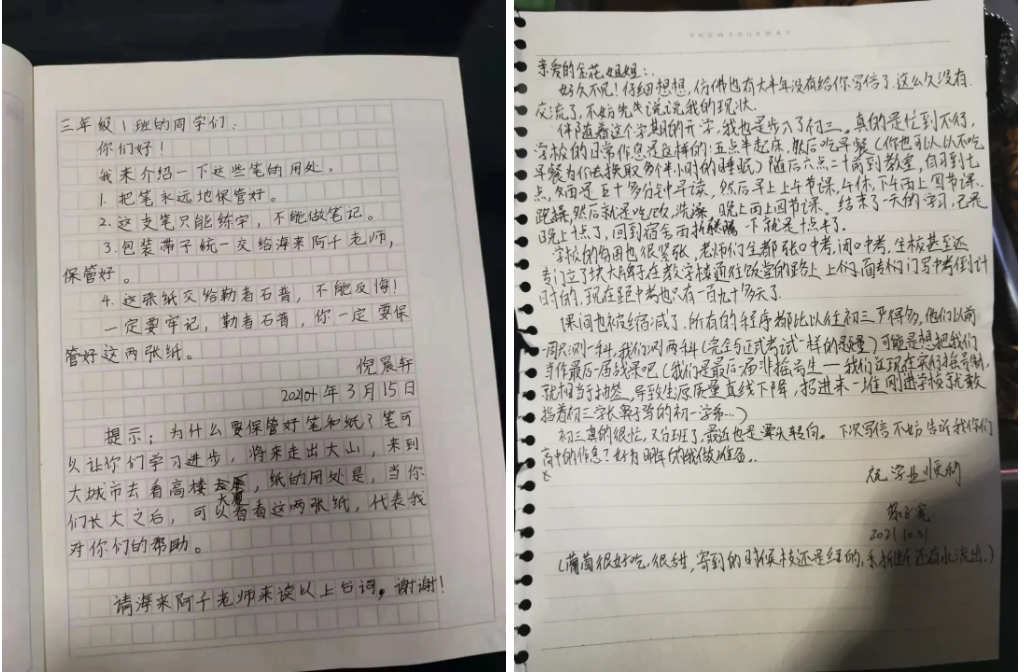 三年级1班的同学们:
你们好!
我来介绍一下这些笔的用处。
1.把笔永远地保管好。
2.这支笔只能练字,不能做笔记。
3.包装带子统一交给海来阿千老师,
保管好。
4.这张纸交给勒者石普,不能反悔!
一定要牢记,勒者石普,你一定要保
管好这两张纸。
倪宸轩
2021年3月15日
提示:为什么要保管好笔和纸?笔可
以让你们学习进步,将来走出大山,来到
大城市去看高楼大厦,纸的用处是,当你
们长大之后,可以看看这两张纸,代表我
对你们的帮助。
请海来阿千老师来读以上台词,谢谢!
亲爱的金花姐姐:
好久不见!仔细想想,仿佛也有大半年没有给你写信了,这么久没有
交流了,不妨先说说我的现状.
伴随着这个学期的开学,我也是步入了初三。真的是忙到不行,
学校的日常作息是这样的:五点半起床,然后吃早餐(你也可以以不吃
早餐为代价换取多个半小时的睡眠)随后六点二十前到教室,自习到七
点,后面是五十多分钟早读,然后早上上午节课,午休,下午再上四节课.
跑操,然后就是吃饭,洗澡,晚上再上四节课.结束了一天的学习,已是
晚上十点了,回到宿舍再折腾一下就是十点半了.
学校的氛围也很紧张,老师们全都张口中考,闭口中考,学校甚至还
专门立了块大牌子在教学楼通往饭堂的路上,上面专门写中考倒计
时的,现在距中考也只有一百九十多天了.
课间也被缩减了,所有的程序都比以往初三严得多,他们以前
一周只测一科,我们测两科(完全与正式考试一样的题量)可能是想把我们
当作最后一届战果吧(我们是最后一届非摇号生——我们这现在实行摇号制,
就相当于抽签,导致生源质量直线下降,招进来一堆刚进学校就敢
指着初三学长鼻子骂的初一学弟…)
初三真的很忙,又分班了,最近也是晕头转向。下次写信不妨告诉我你们
高中的作息?好为明年的我做准备..
祝 学业顺利
2021.10.31
(葡萄很好吃,很甜,寄到的时候枝还是绿的,折断还有水流出.)